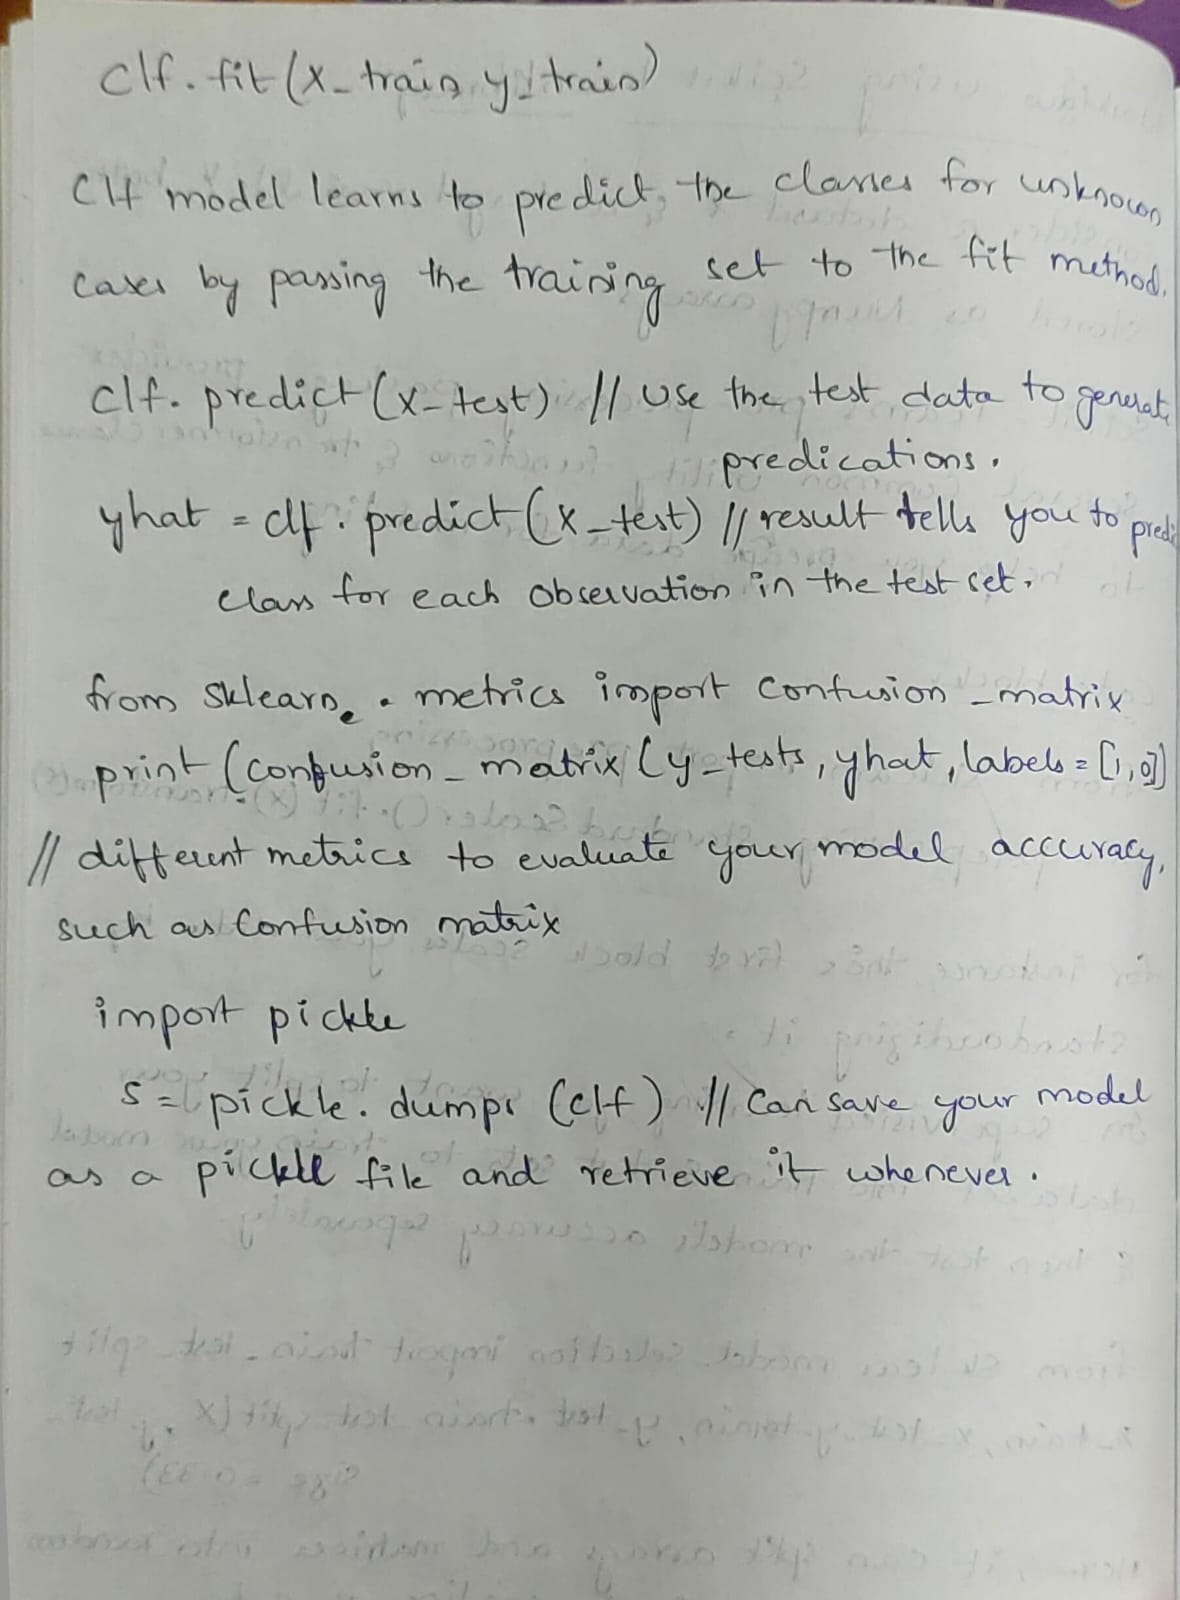 clf. fit (X_train, y_train)
Clf model learns to predict, the classes for unknown
cases by passing the training set to the fit method.
clf. predict (X_test) // use the test data to generate
predications.
yhat = clf. predict (X_test) // result tells you to predi
class for each observation in the test set.
from sklearn. . metrics import confusion_matrix
print (confusion_matrix (y_tests, yhat, labels = [1,0])
// different metrics to evaluate your model accuracy,
such as Confusion matrix
import pickle
s = pickle. dumps (clf) // Can save your model
as a pickle file and retrieve it whenever.